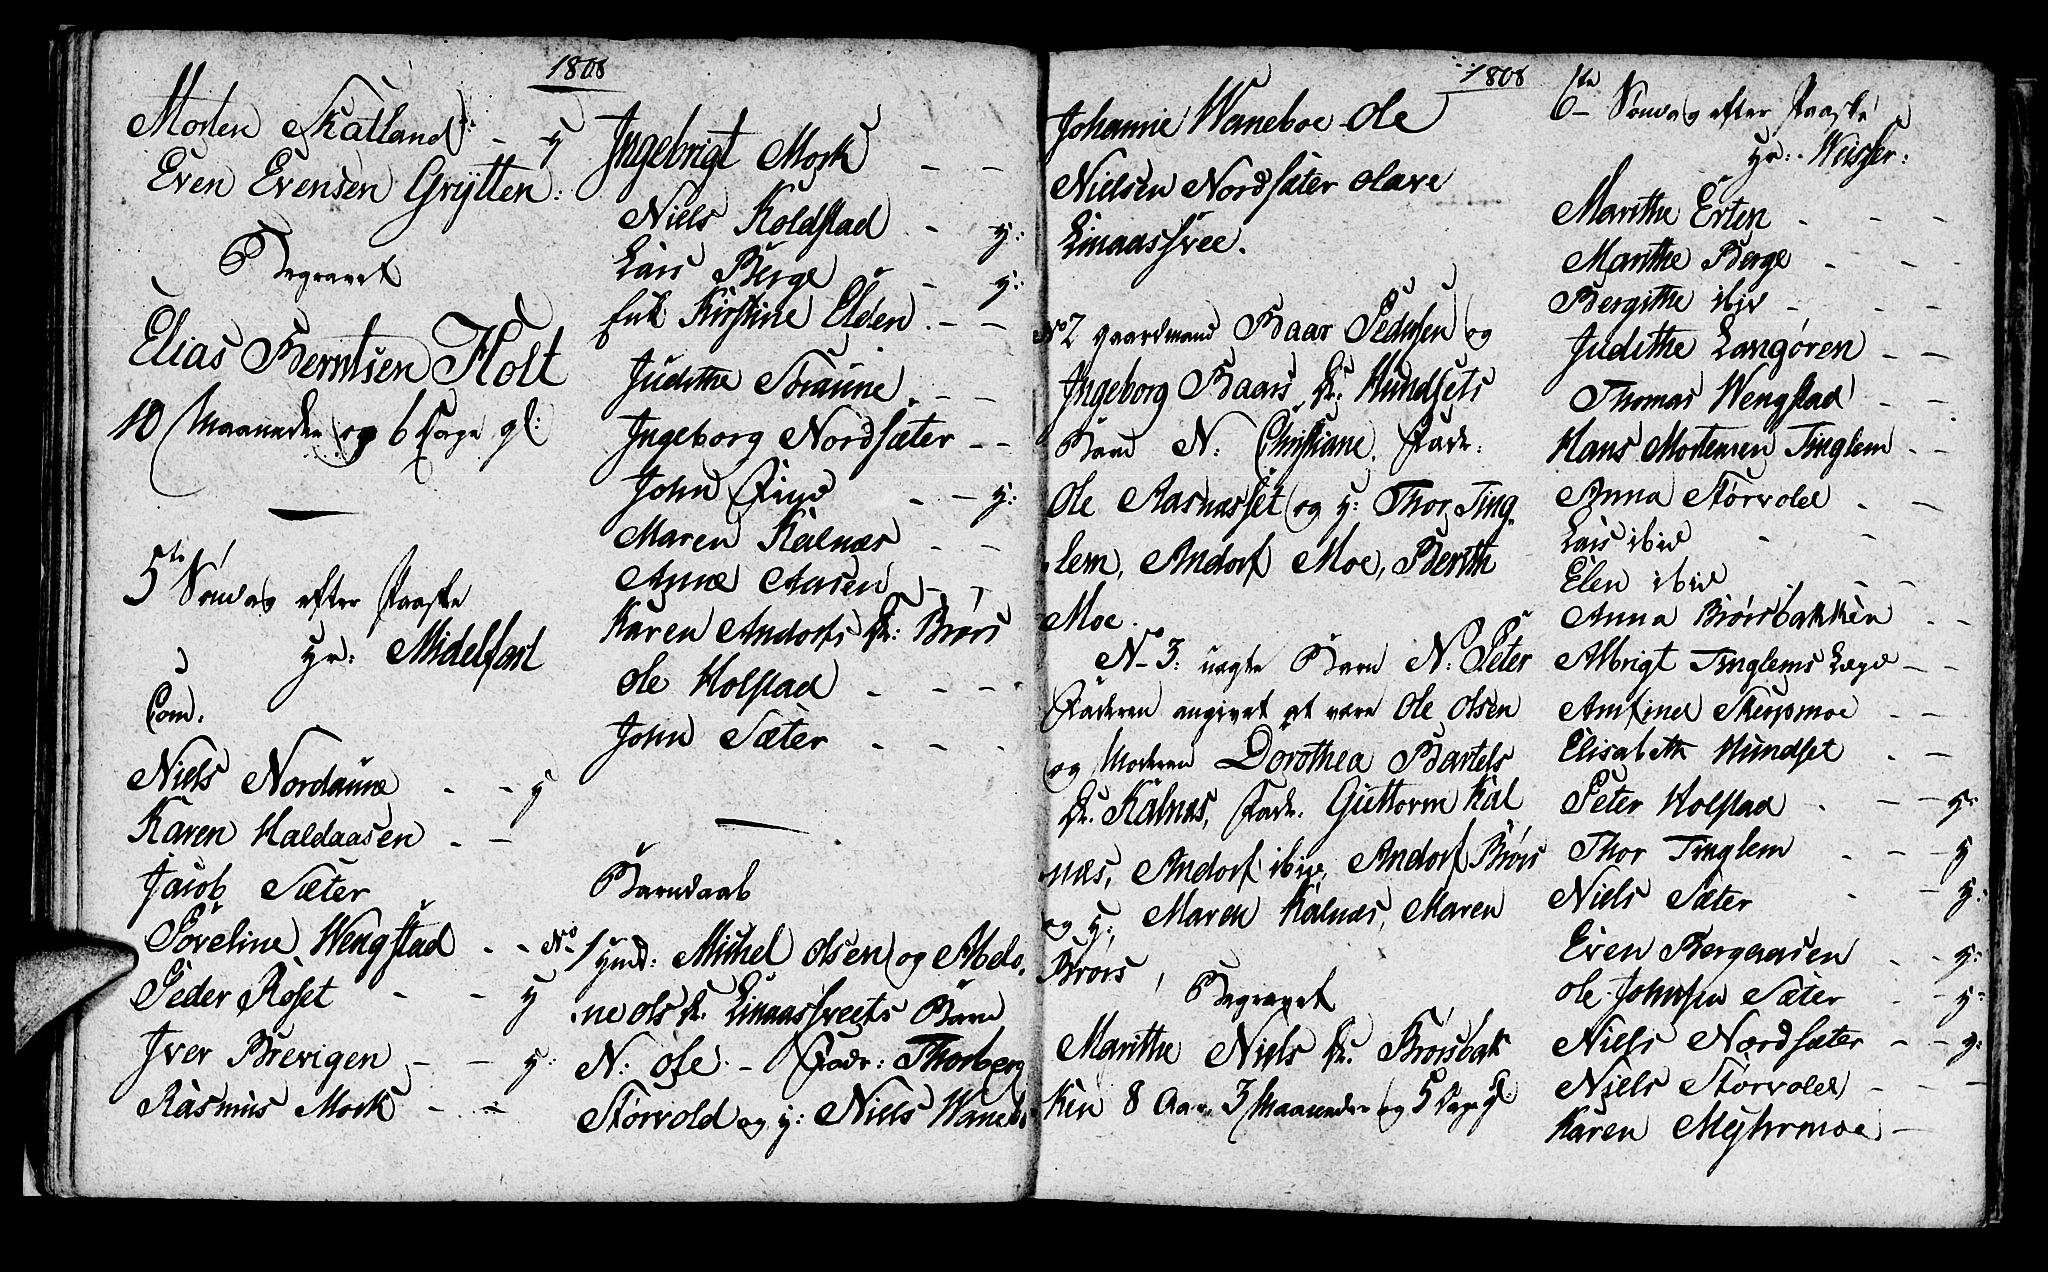 1808
Morten Skatland: - y
Even Evensen Grÿtten:
Begravet
Elias Berntsen Holt
10 Maaneder og 6 Dage gl:
5te Søndag efter Paaske
Hr: Midelfart
Com:
Niels Nordaune - - y
Karen Haldaasen - -
Jacob Sæter
Søveline Wengstad - -
Peder Røset - - y
Iver Brevigen - - y:
Rasmus Mork - -
Ingebrigt Mork - -
Niels Koldstad - y:
Lars Berge - y:
Kirstine Elden - -
Judithe Straune - -
Ingeborg Nordsæter - -
John Fins - - y:
Maren Kalnæs - -
Anne Aasen - -
Karen Andorfs Dr: Brørs
Ole Holstad - - -
John Sæter - - -
Barndaab
No 1 Hmd: Michel Olsen og Abelo-
ne Ols Dr. Linaassveets Barn
N: Ole - Fadr: Thorberg
Størvold og y: Niels Waneb.
1808
Johanne Waneboe Ole
Nielsen Nordsæter Olave
Linaassvee.
No 2 gaardmand Baar Pedersen og
Ingeborg Baars Dr: Hundsets
Barn N: Christiane. Fadr:
Ole Aasnasset og y: Thor Ting-
lem, Andorf Moe, Berith
Moe.
No 3: uægte Barn N: Peter
Faderen angivet at være Ole Olsen
og Moderen Dorothea Bartels
Dr. Kalnæs, Fadr: Guttorm Kal
næs, Andorf ibid, Andorf Brørs
og y: Maren Kalnæs, Maren
Brørs,
Begravet
Marithe Niels Dr. Brørsbak
ken 8 Aar, 3 Maaneder og 5 Dage gl:
6te Søndag efter Paaske
Hr: Weisser:
Marithe Erten - - -
Marithe Berge - - -
Bergithe ibid - - -
Judithe Langøren - -
Thomas Wengstad - -
Hans Mortensen Tinglem - -
Anna Størvold - -
Lars ibid - -
Elen ibid - -
Anna Brørsbakken - -
Albrigt Tinglems Lægd - -
Amfined Skerpmoe - -
Elisabeth Hundset - -
Peter Holstad - - - y:
Thor Tinglem - - - y
Niels Sæter - - y:
Even Bergaasen - - y:
Ole Johnsen Sæter - - y:
Niels Nordsæter - - y:
Niels Størvold - - -
Karen Myhrmoe -